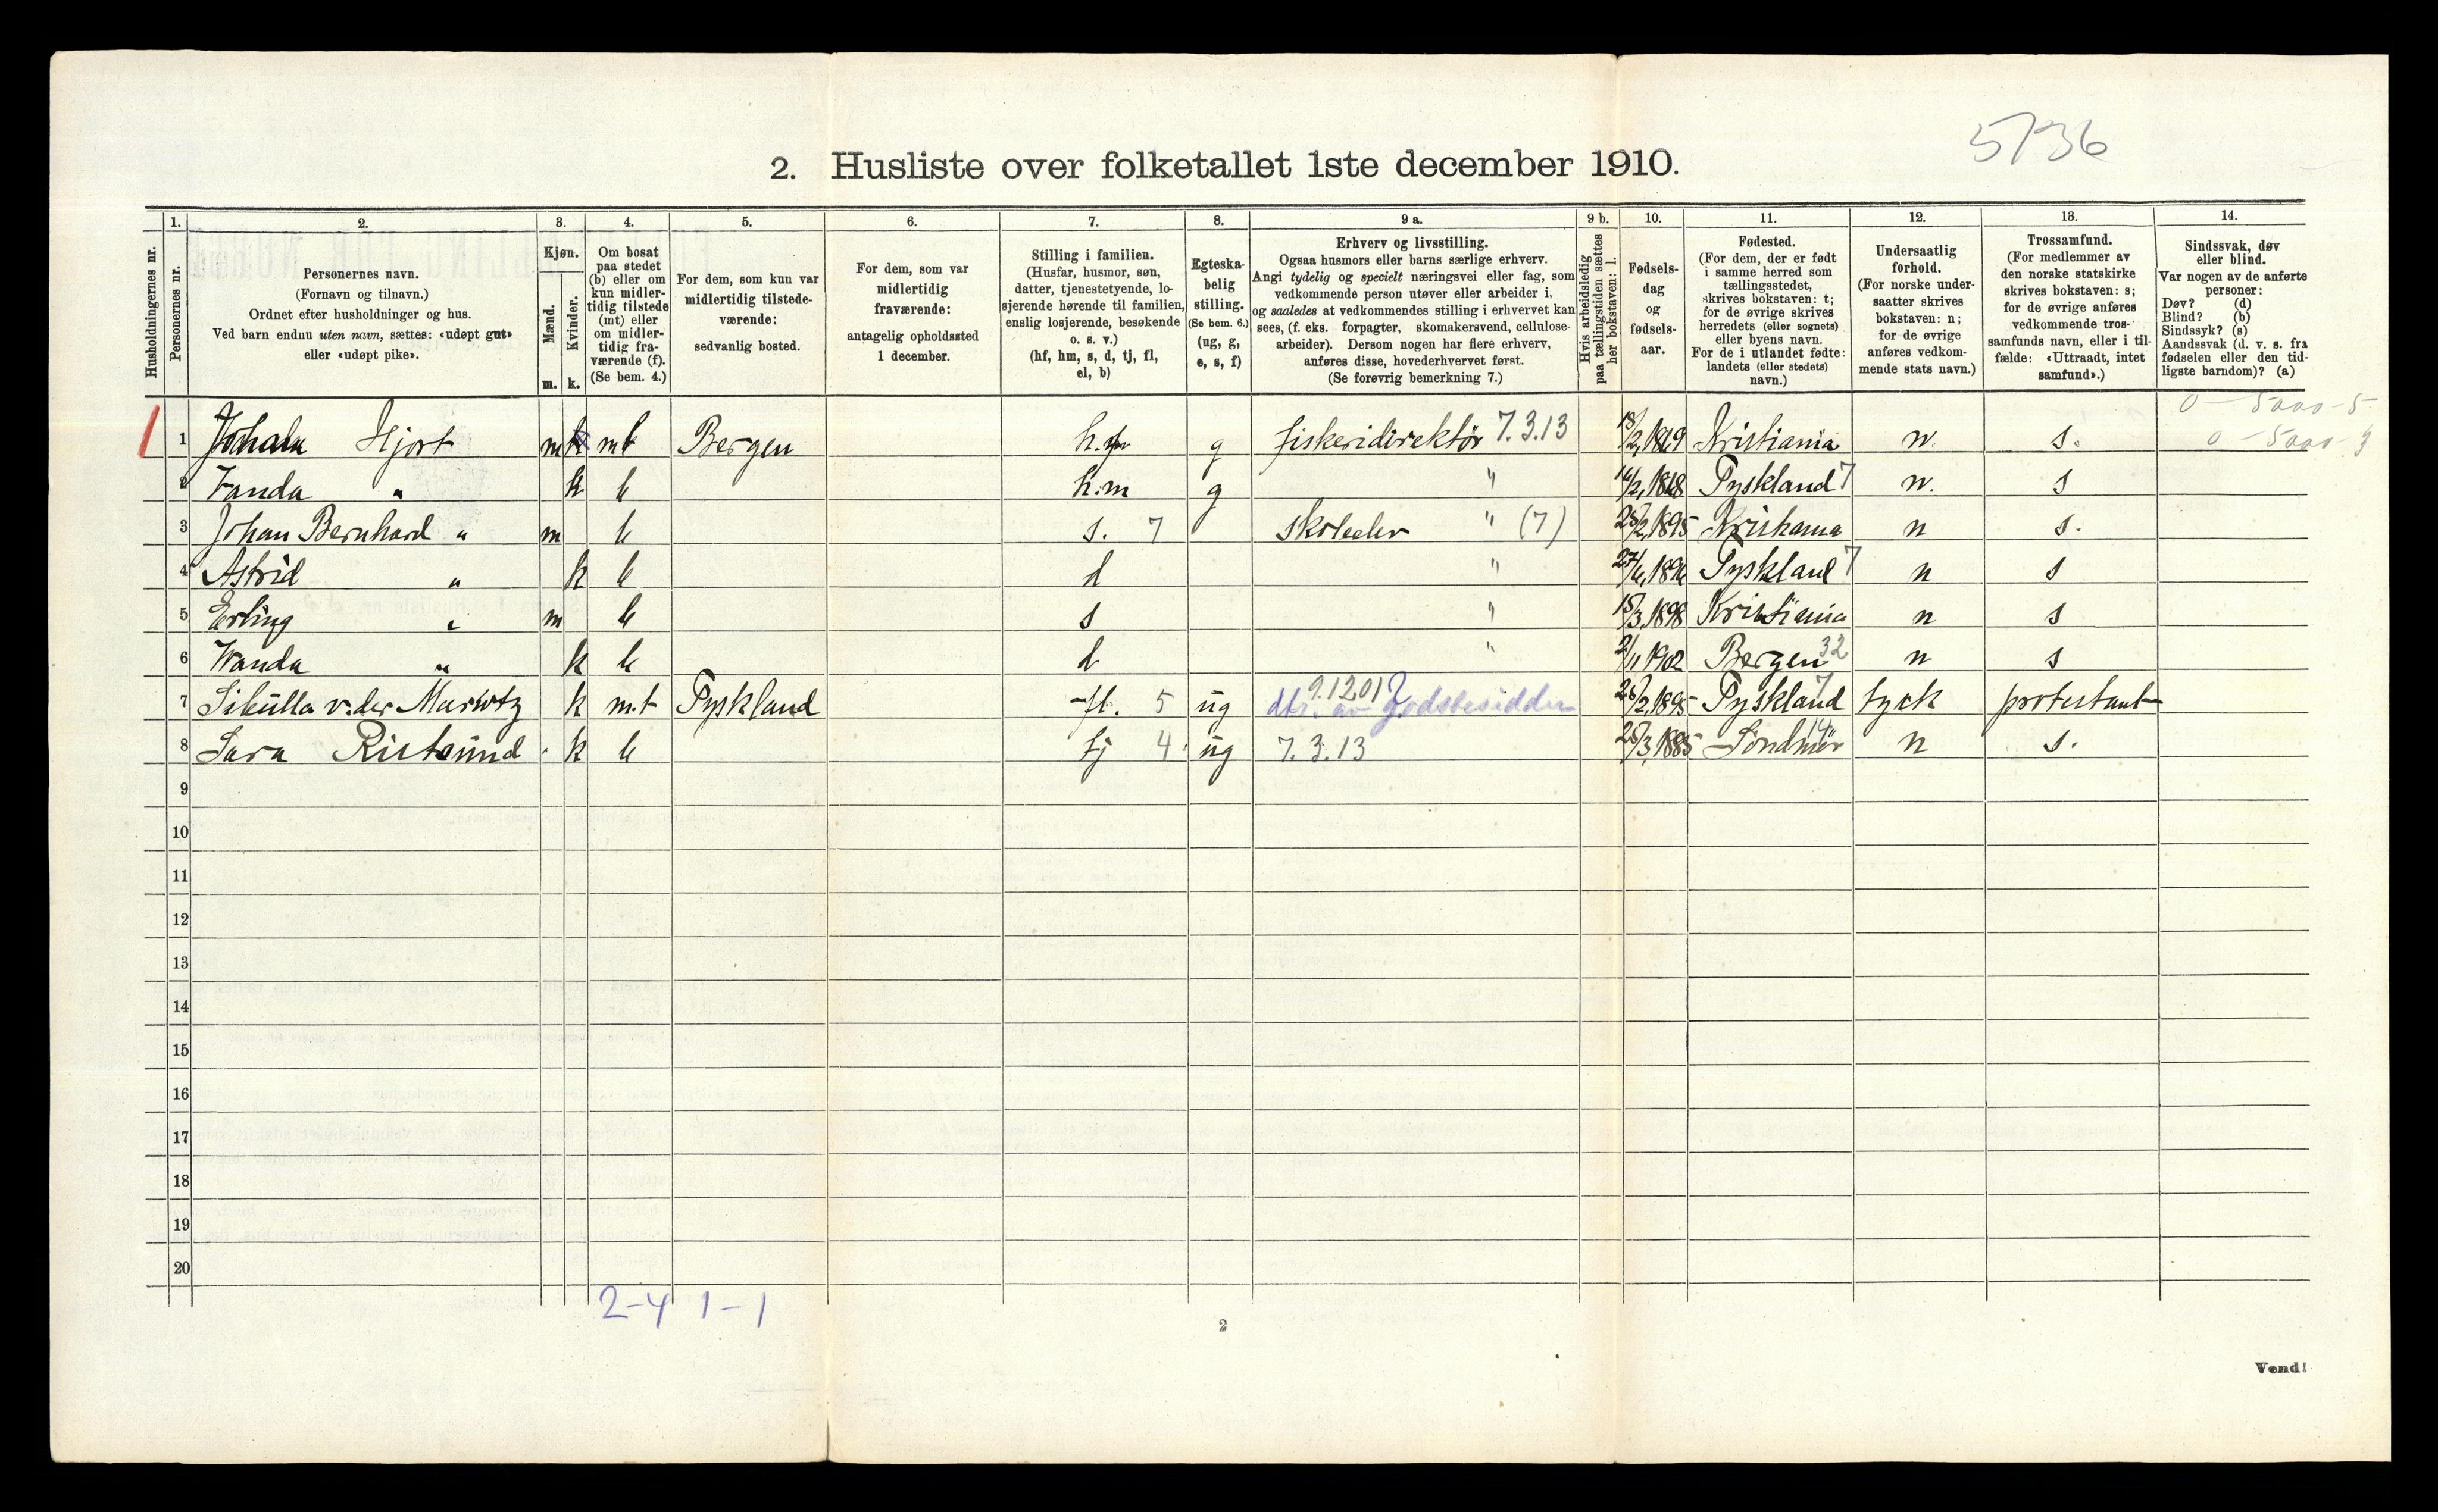 5736
2. Husliste over folketallet 1ste december 1910.
1. 2. 3. 4. 5. 6. 7. 8. 9 a. 9 b. 10. 11. 12. 13. 14.
Husholdningernes nr.
Personernes nr.
Personernes navn.
(Fornavn og tilnavn.)
Ordnet efter husholdninger og hus.
Ved barn endnu uten navn, sættes: «udøpt gut»
eller «udøpt pike».
Kjøn.
Mænd.
Kvinder.
m. k.
Om bosat
paa stedet
(b) eller om
kun midler-
tidig tilstede
(mt) eller
om midler-
tidig fra-
værende (f).
(Se bem. 4.)
For dem, som kun var
midlertidig tilstede-
værende:
sedvanlig bosted.
For dem, som var
midlertidig
fraværende:
antagelig opholdssted
1 december.
Stilling i familien.
(Husfar, husmor, søn,
datter, tjenestetyende, lo-
sjerende hørende til familien,
enslig losjerende, besøkende
o. s. v.)
(hf, hm, s, d, tj, fl,
el, b)
Egteska-
belig
stilling.
(Se bem. 6.)
(ug, g,
e, s, f)
Erhverv og livsstilling.
Ogsaa husmors eller barns særlige erhverv.
Angi tydelig og specielt næringsvei eller fag, som
vedkommende person utøver eller arbeider i,
og saaledes at vedkommendes stilling i erhvervet kan
sees, (f. eks. forpagter, skomakersvend, cellulose-
arbeider). Dersom nogen har flere erhverv,
anføres disse, hovederhvervet først.
(Se forøvrig bemerkning 7.)
Hvis arbeidsledig
paa tællingstiden sættes
her bokstaven: l.
Fødsels-
dag
og
fødsels-
aar.
Fødested.
(For dem, der er født
i samme herred som
tællingsstedet,
skrives bokstaven: t;
for de øvrige skrives
herredets (eller sognets)
eller byens navn.
For de i utlandet fødte:
landets (eller stedets)
navn.)
Undersaatlig
forhold.
(For norske under-
saatter skrives
bokstaven: n;
for de øvrige
anføres vedkom-
mende stats navn.)
Trossamfund.
(For medlemmer av
den norske statskirke
skrives bokstaven: s;
for de øvrige anføres
vedkommende tros-
samfunds navn, eller i til-
fælde: «Uttraadt, intet
samfund».)
Sindssvak, døv
eller blind.
Var nogen av de anførte
personer:
Døv? (d)
Blind? (b)
Sindssyk? (s)
Aandssvak (d. v. s. fra
fødselen eller den tid-
ligste barndom)? (a)
0 - 5000 - 5
1 1 Johan Hjort m mt Bergen h.f g fiskeridirektör 7.3.13 18/2, 1869 Kristiania n. s. 0 - 5000 - 3
2 Vanda " k b h.m g " 16/2, 1868 Tyskland 7 n. s
3 Johan Bernhard " m b s. 7 skoleelev " (7) 25/2, 1895 Kristiania n s.
4 Astrid " k b d " 27/6, 1896 Tyskland 7 n s
5 Erling " m b s " 15/3, 1898 Kristiania n s
6 Wanda " k b d " 2/11 1902 Bergen 32 n s
7 Sibulla v. der Marwitz k m.t Tyskland fl. 5 ug 9.1201 dtr. av Godsbesidder 25/2, 1895 Tyskland 7 tysk protestant
8 Sara Ristesund k b tj 4 ug 7.3.13 25/3, 1885 Söndmör 14 n s.
9
10
11
12
13
14
15
16
17
18
19
20
2-4 1-1
2
Vend!